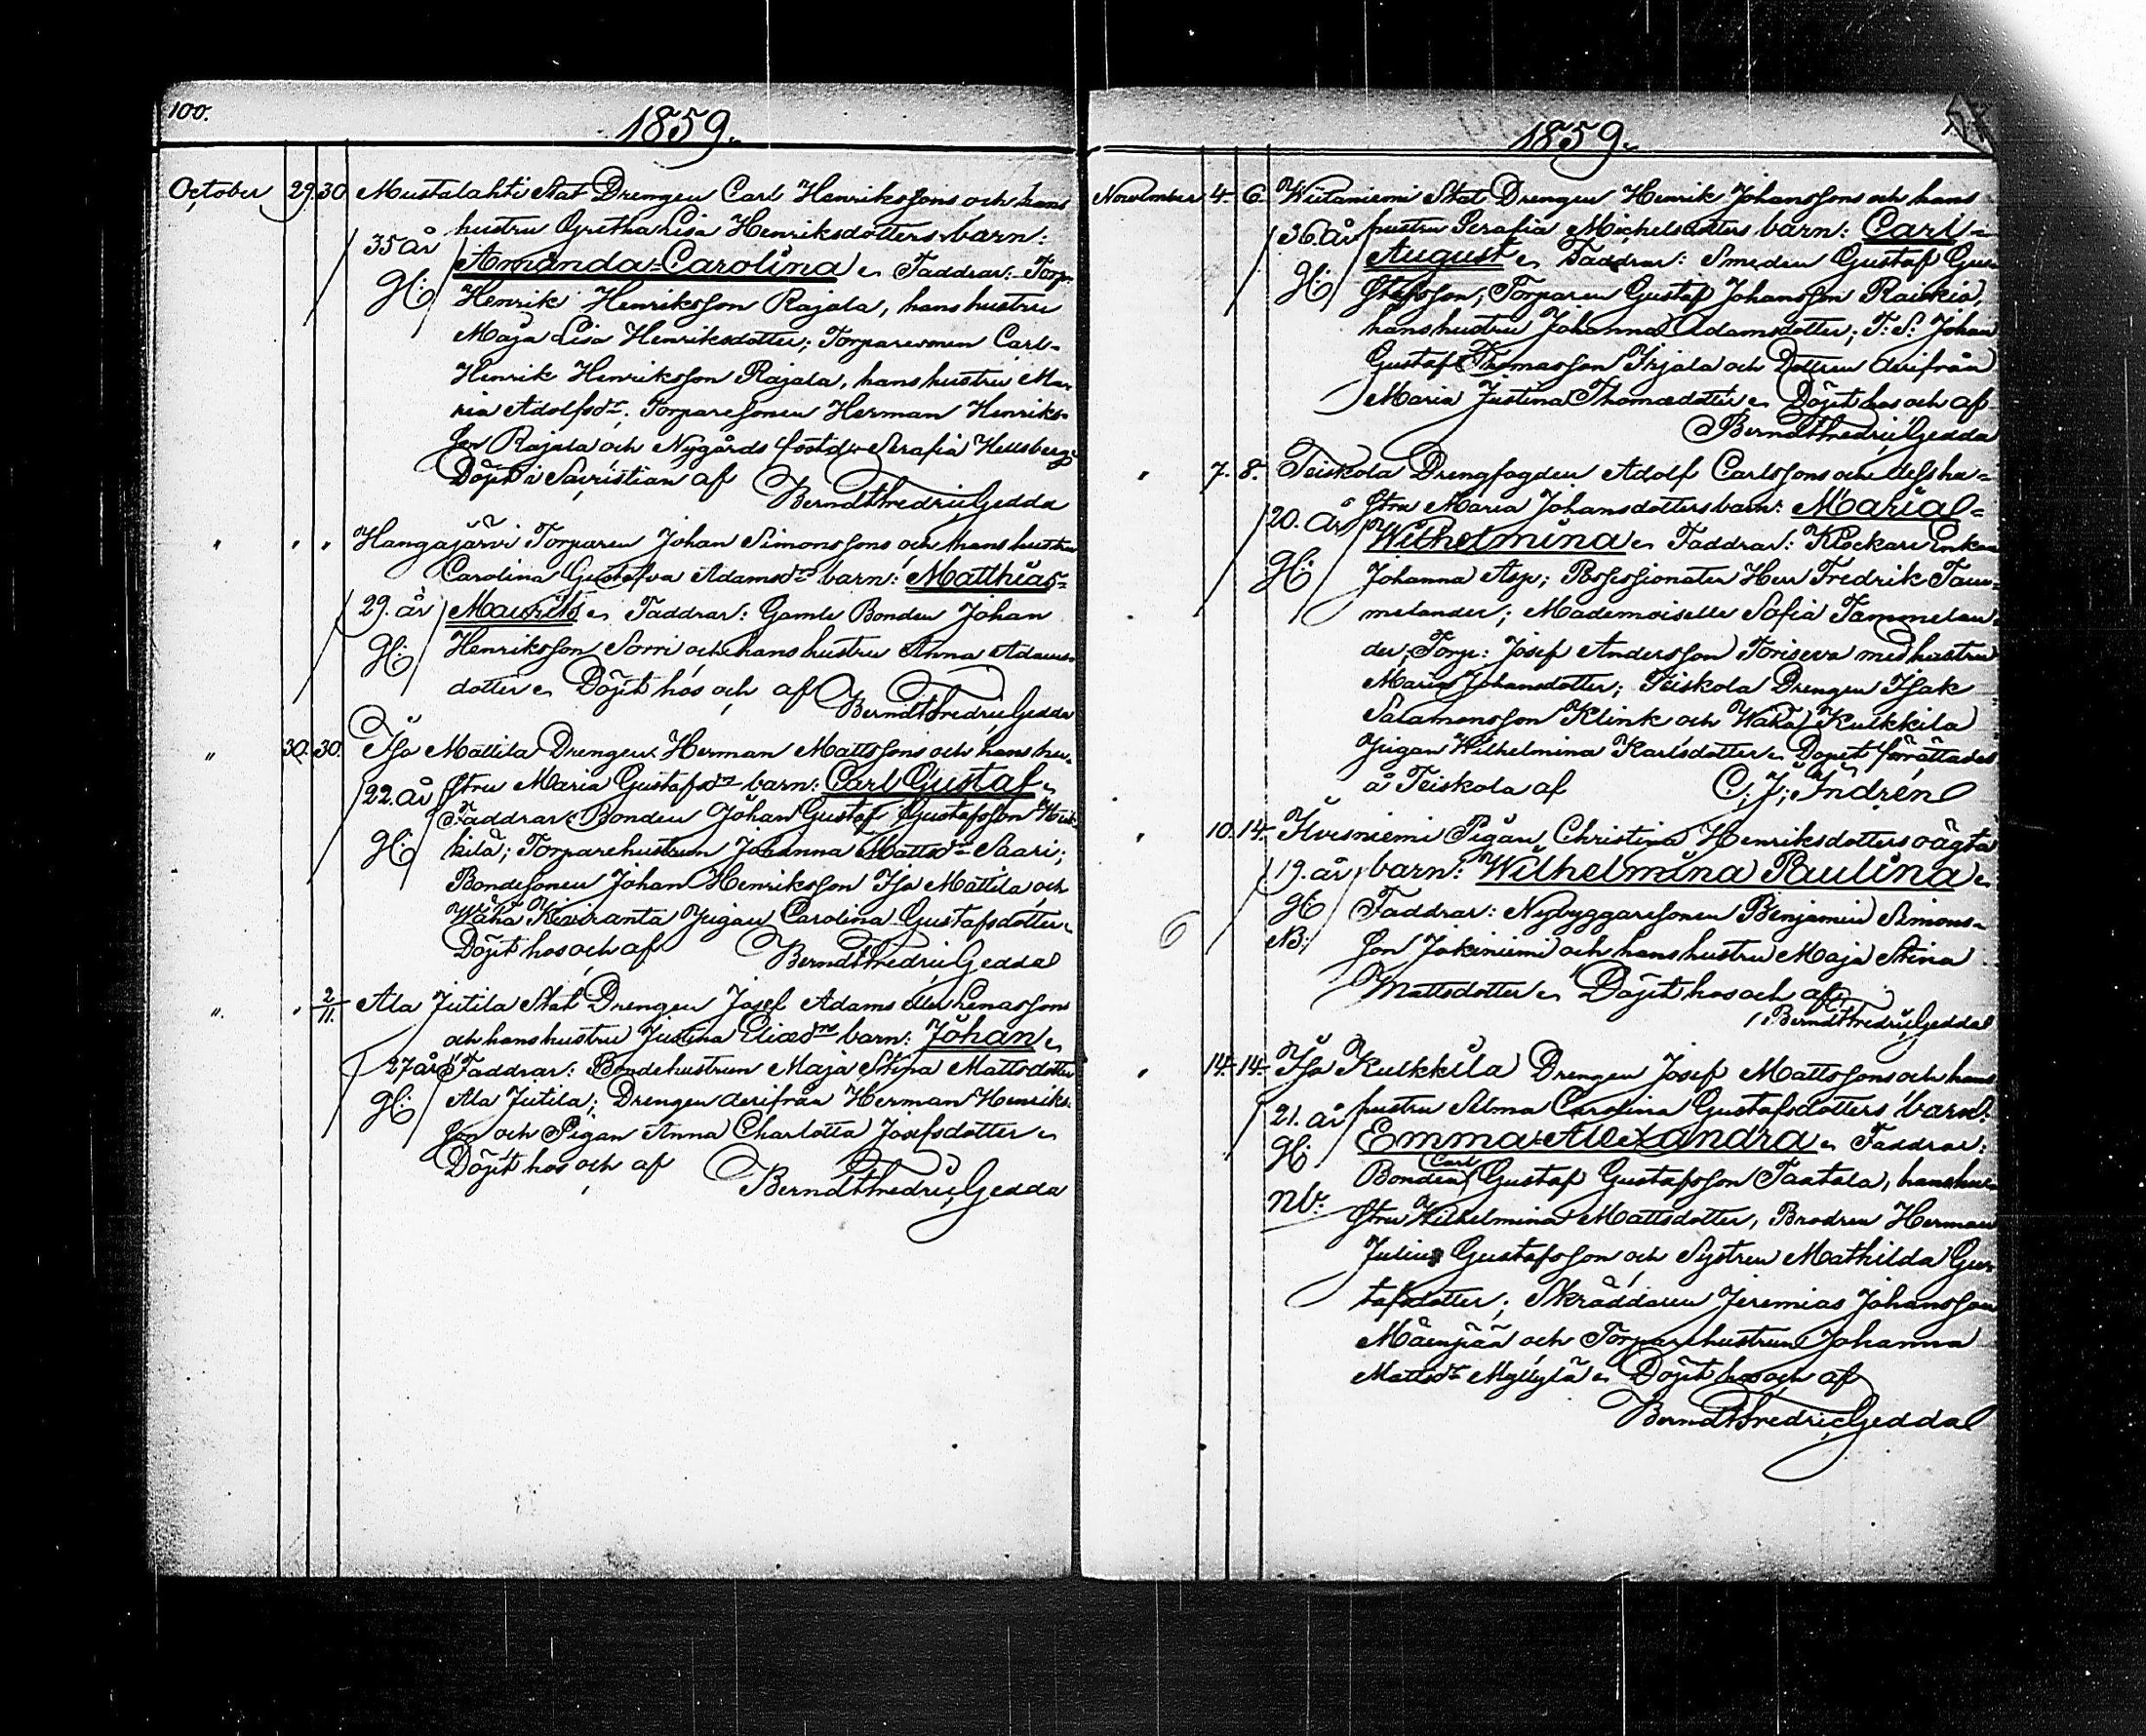 100.
1859.
October 29. 30 Mustalahti Stat Drengen Carl Henrikssons och hans
hustru Gretha Lisa Henriksdotters barn:
35 år Amanda Carolina. Faddrar: Torp:
G: Henrik Henriksson Rajala, hans hustru
Maja Lisa Henriksdotter; Torparesonen Carl
Henrik Henriksson Rajala, hans hustru Ma-
ria Adolfsdr; Torparesonen Herman Henriks-
son Rajala och Nygårds Serafia
Döpt i Sacristian af Berndt Fredric Gedda
" " " Hangajärvi Torparen Johan Simonssons och hans hustru
Carolina Gustafva Adamsdrs barn: Matthias
29. år Maurits. Faddrar: Gamle Bonden Johan
G: Henriksson Sorri och hans hustru Anna Adams-
dotter. Döpt hos och af Berndt Fredric Gedda
" 30. 30. Iso Mattila Drengen Herman Mattssons och hans hu-
22. år stru Maria Gustafsdrs barn: Carl Gustaf.
Faddrar: Bonden Johan Gustaf Gustafsson
G: kilä; Torparehustrun Johanna Mattsdr Saari;
Bondesonen Johan Henriksson Iso Mattila och
Wähä Kiviranta Pigan Carolina Gustafsdotter.
Döpt hos och af Berndt Fredric Gedda
" " 2/11. Ala Jutila Stat Drengen Josef Adams eller Enassons
och hans hustru Justina Eliædrs barn: Johan.
27 år Faddrar: Bondehustrun Maja Stina Mattsdotter
G: Ala Jutila; Drengen derifrån Herman Henriks-
son och Pigan Anna Charlotta Josefsdotter.
Döpt hos och af Berndt Fredric Gedda
1859.
November 4. 6. Wiitaniemi Stat Drengen Henrik Johanssons och hans
36. år hustru Serafia Michelsdotters barn: Carl
August. Faddrar: Smeden Gustaf Gu-
G: stafsson, Torparen Gustaf Johansson Raiskio,
hans hustru Johanna Adamsdotter; T: S: Johan
Gustaf Thomasson Yrjälä och Dottren derifrån
Maria Justina Thomædotter. Döpt hos och af
Berndt Fredric Gedda
" 7. 8. Teiskola Drengfogden Adolf Carlssons och dess hu-
20. år stru Maria Johansdotters barn: Maria
Wilhelmina. Faddrar: Klockare Enkan
G: Johanna Asp; Possessionaten Herr Fredrik Tam-
melander; Mademoiselle Sofia Tammelan-
der; Torp: Josef Andersson Toriseva med hustru
Maria Johansdotter; Teiskola Drengen Isak
Salomonsson Klink och Wähä Kulkkila
Pigan Wilhelmina Karlsdotter. Dopet förrättades
å Teiskola af C. J. Indrén
" 10. 14. Ilvesniemi Pigan Christina Henriksdotters oägta
19. år barn: Wilhelmina Paulina.
G: Faddrar: Nybyggaresonen Benjamin Simons-
NB: son Jakiniemi och hans hustru Maja Stina
Mattsdotter. Döpt hos och af
Berndt Fredric Gedda
" 14. 14. Iso Kulkkila Drengen Josef Mattssons och hans
21. år hustru Selma Carolina Gustafsdotters barn:
G: Emma Alexandra. Faddrar:
Bonden Carl Gustaf Gustafsson Taatala, hans hu-
NB: stru Wilhelmina Mattsdotter, Brodren Herman
Julius Gustafsson och Systren Mathilda Gus-
tafsdotter; Skräddaren Jeremias Johansson
Mäenpää och Torparehustrun Johanna
Mattsdr Myllylä. Döpt hos och af
Berndt Fredric Gedda